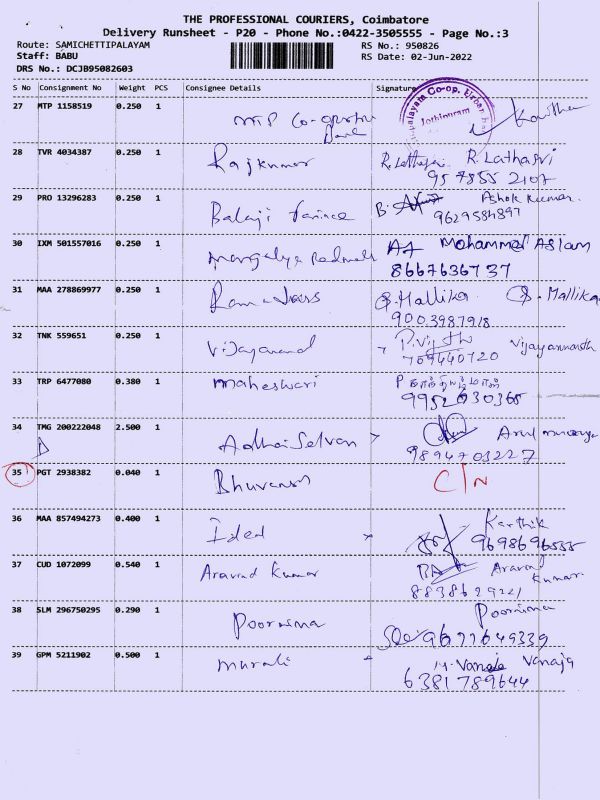 THE PROFESSIONAL COURIERS, Coimbatore
Delivery Runsheet - P20 - Phone No.:0422-3505555 - Page No.:3
Route: SAMICHETTIPALAYAM RS No.: 950826
Staff: BABU RS Date: 02-Jun-2022
DRS No.: DCJB95082603
S No Consignment No Weight PCS Consignee Details Signature
27 MTP 1158519 0.250 1 MTP Co-operative Bank Kavitha
Co-op. Urban
Jothipuram
28 TVR 4034387 0.250 1 Rajkumar R. Lathasri
957855 2107
29 PRO 13296283 0.250 1 Balaji B. Ashok Kumar.
9629584897
30 IXM 501557016 0.250 1 Mangalya Mohammed Aslam
8667636737
31 MAA 278869977 0.250 1 Ramdoss S. Mallika S. Mallika
9003987918
32 TNK 559651 0.250 1 Vijayanand Vijayannath
709440720
33 TRP 6477080 0.380 1 Maheswari
34 TMG 200222048 2.500 1 Adhaiselvan
9894703227
35 PGT 2938382 0.040 1 C/N
36 MAA 857494273 0.400 1 Ideal Karthik
9698696555
37 CUD 1072099 0.540 1 Aravind Kumar Aravind Kumar
38 SLM 296750295 0.290 1 Poornima Poornima
9677649339
39 GPM 5211902 0.500 1 Murali Vanaja
6381789644